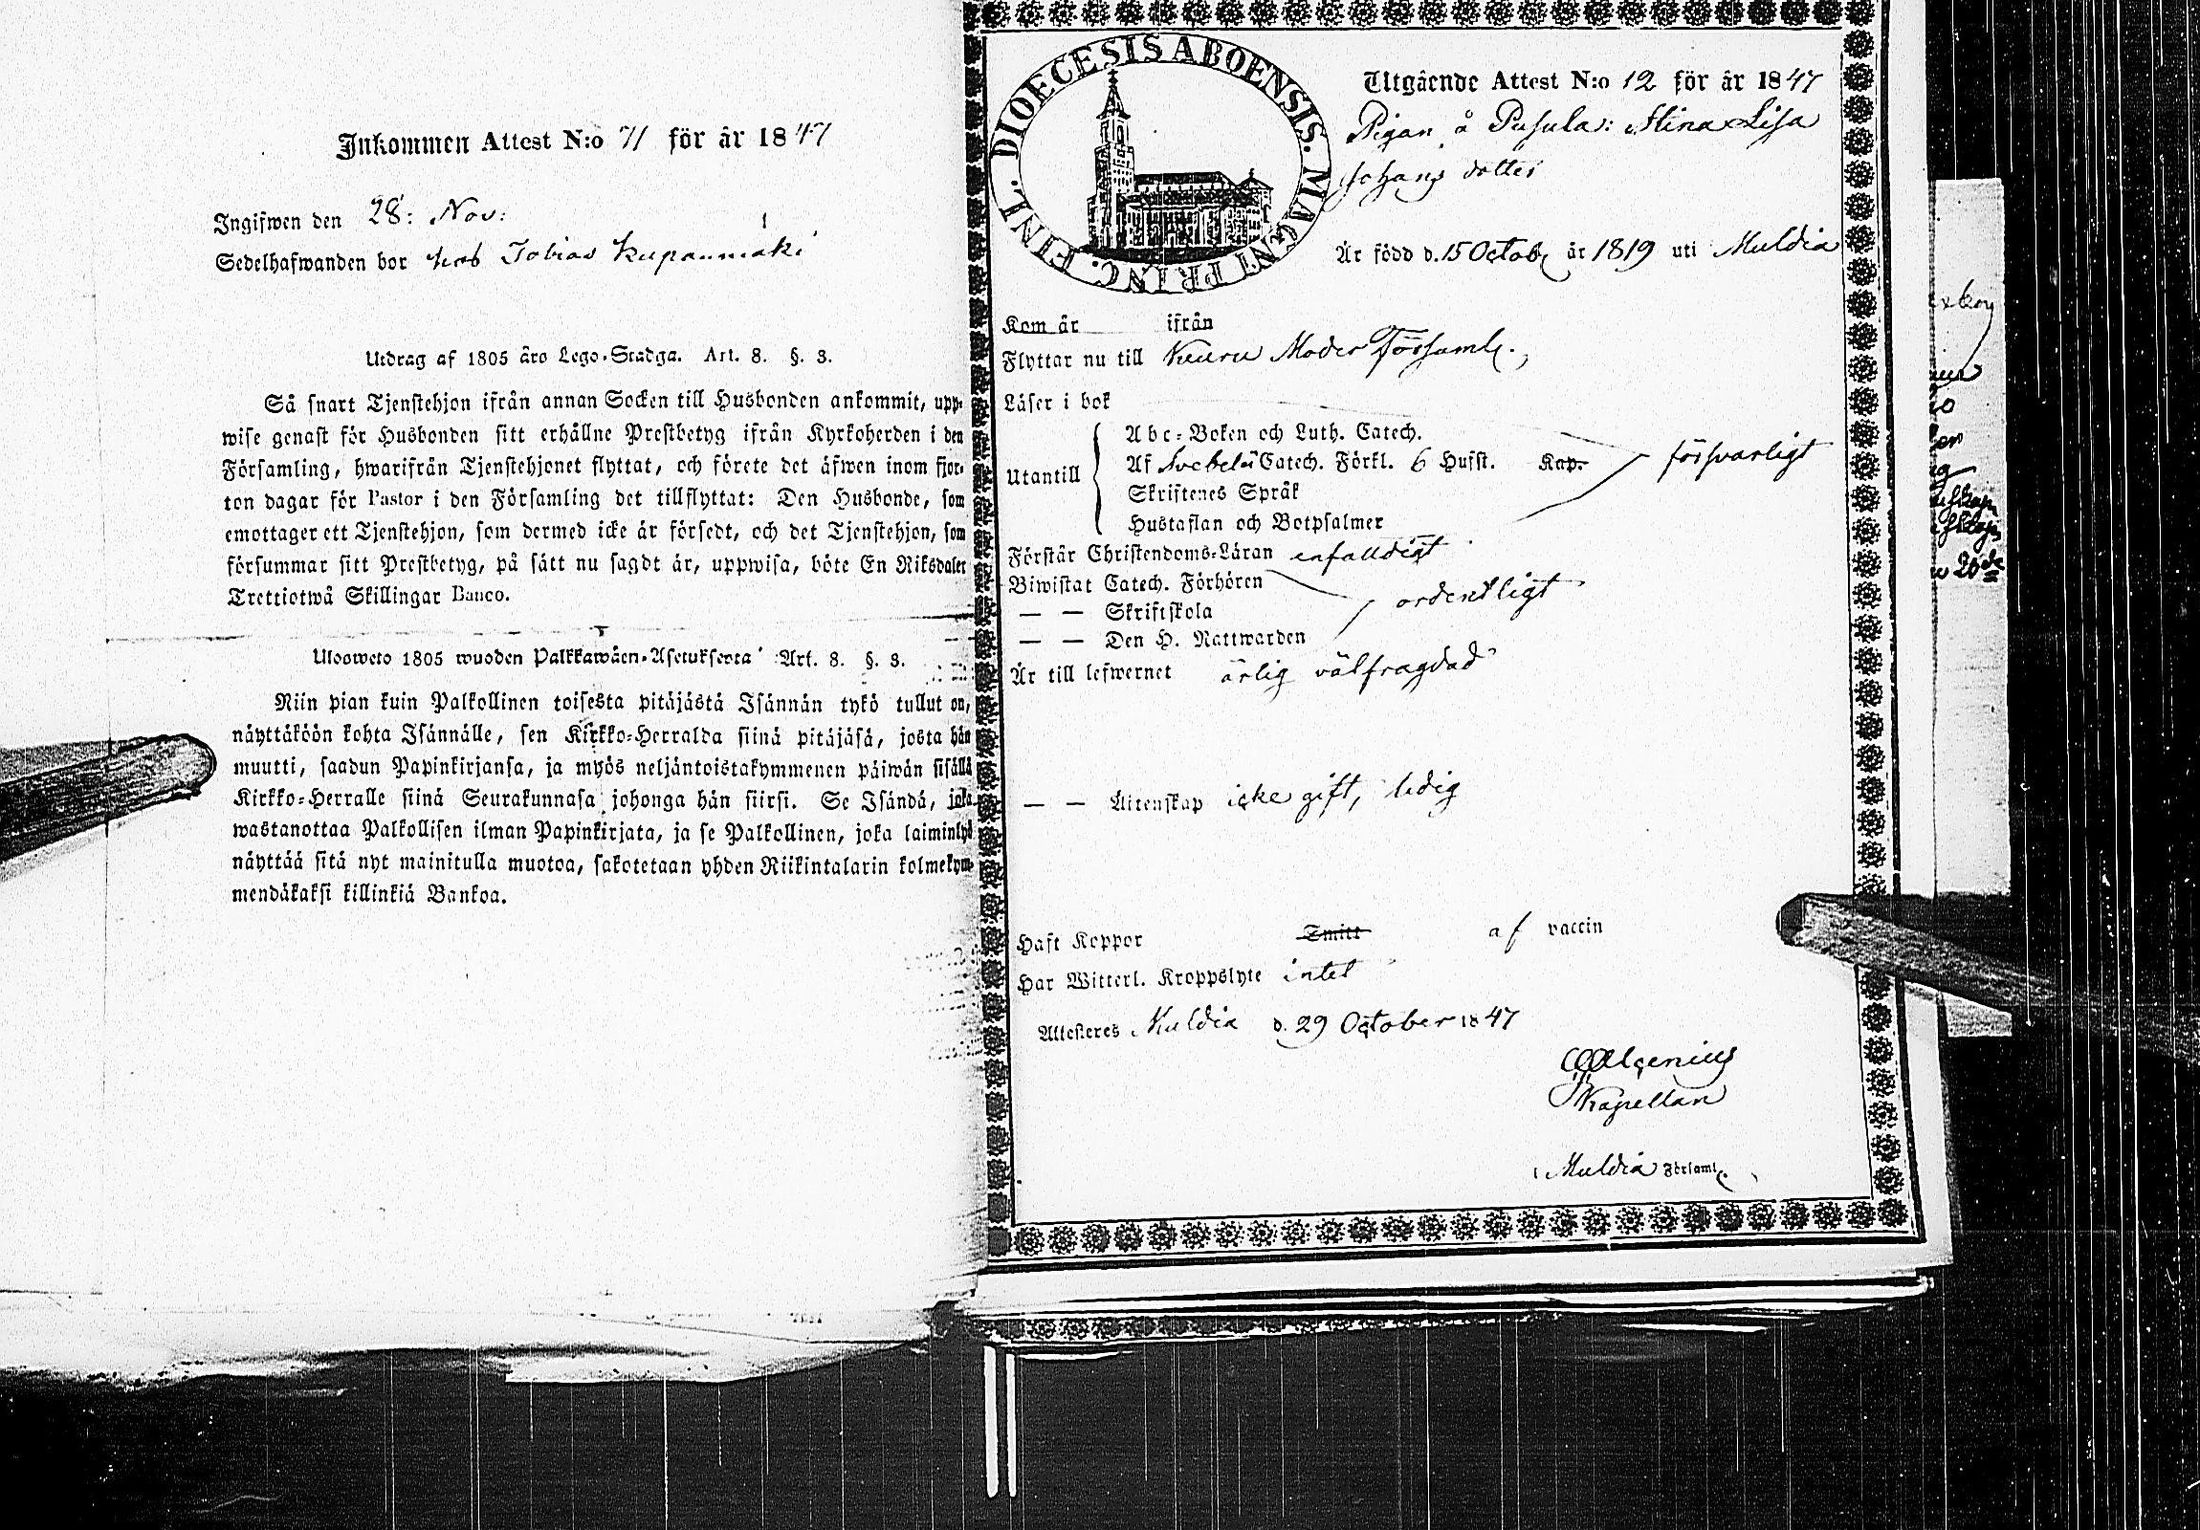 Inkommen Attest N:o 71 för år 1847
Ingifwen den 28: Nov:
Sedelhafwanden bor hos Tobias Kupanmäki
Utdrag af 1805 års Lego-Stadga. Art. 8. §. 3.
Så snart Tjenstehjon ifrån annan Socken till Husbonden ankommit, upp-
wise genast för Husbonden sitt erhållne Prestbetyg ifrån Kyrkoherden i den
Församling, hwarifrån Tjenstehjonet flyttat, och förete det äfwen inom fjor-
ton dagar för Pastor i den Församling det tillflyttat: Den Husbonde, som
emottager ett Tjenstehjon, som dermed icke är försedt, och det Tjenstehjon, som
försummar sitt Prestbetyg, på sätt nu sagdt är, uppwisa, böte En Riksdaler
Trettiotwå Skillingar Banco.
Ulosweto 1805 wuoden Palkkawäen-Asetuksesta Art. 8. §. 3.
Niin pian kuin Palkollinen toisesta pitäjästä Isännän tykö tullut on,
näyttäköön kohta Isännälle, sen Kirkko-Herralda siinä pitäjäsä, josta hän
muutti, saadun Papinkirjansa, ja myös neljäntoistakymmenen päiwän sisällä
Kirkko-Herralle siinä Seurakunnasa johonga hän siirsi. Se Isändä, joka
wastanottaa Palkollisen ilman Papinkirjata, ja se Palkollinen, joka laiminlyö
näyttää sitä nyt mainitulla muotoa, sakotetaan yhden Riikintalarin kolmekym-
mendäkaksi killinkiä Bankoa.
DIOECESIS ABOENSIS. MAGNI PRINC. FINL.
Utgående Attest N:o 12 för år 1847
Pigan å Pusula: Stina Lisa
Johans dotter
Är född d. 15 Octob. år 1819 uti Muldia
Kom år ifrån
Flyttar nu till Keuru Moder Församl.
Läser i bok
Utantill
Abc-Boken och Luth. Catech.
Af Svebelii Catech. Förkl. 6 Hufst. Kap.
försvarligt
Skriftenes Språk
Hustaflan och Botpsalmer
Förstår Christendoms-Läran enfaldigt
Biwistat Catech. Förhören
— — Skriftskola
ordentligt
— — Den H. Nattwarden
Är till lefwernet ärlig välfragdad
— — Äktenskap icke gift, ledig
Haft Koppor Smitt af vaccin
Har Witterl. Kroppslyte intet
Attesteres Muldia d. 29 October 1847
Algenius
Kapellan
Muldia Församl.